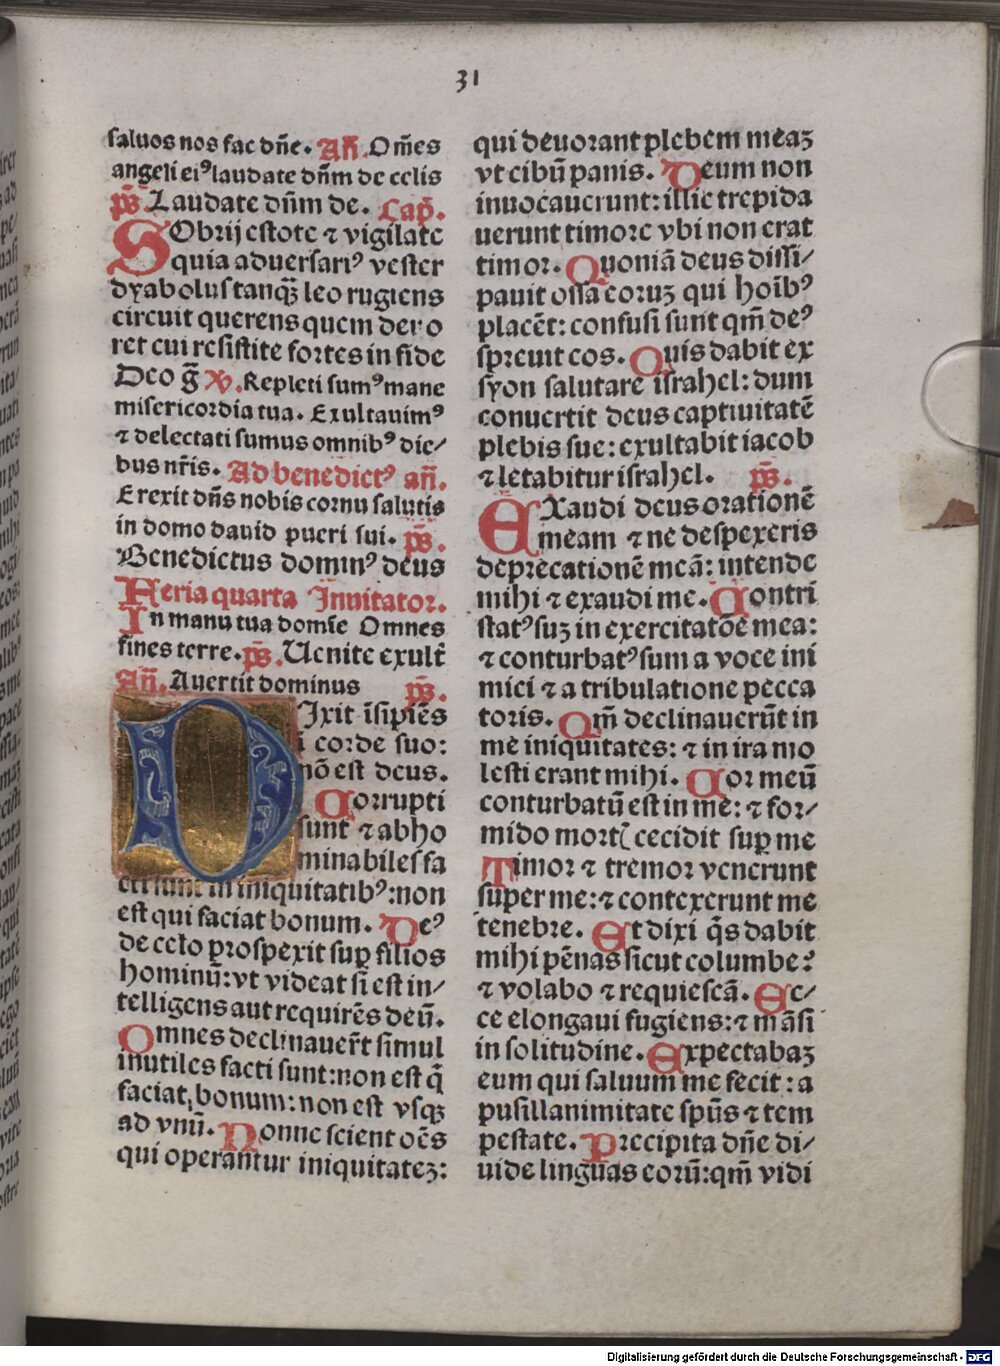 31
saluos nos fac dn̄e. Añ. Om̄es
angeli ei⁹ laudate dn̄m de celis
p̄s. Laudate dn̄m de. Cap̄.
SObrij estote ⁊ vigilate
quia aduersari⁹ vester
dyabolus tanqȝ̄ leo rugiens
circuit querens quem deuo
ret cui resistite fortes in fide
Deo ḡ xv. Repleti sum⁹ mane
misericordia tua. Exultauim⁹
⁊ delectati sumus omnib⁹ die⸗
bus nr̄is. Ad benedict⁹ añ.
Erexit dn̄s nobis cornu salutis
in domo dauid pueri sui. p̄s.
Benedictus domin⁹ deus
Feria quarta Inuitator.
In manu tua domīe Omnes
fines terre. p̄s. Uenite exult̄
Añ. Auertit dominus p̄s.
DIxit īsipiēs
ī corde suo:
nō est deus.
Corrupti
sunt ⁊ abho
minabiles fa
cti sunt in iniquitatib⁹: non
est qui faciat bonum. De⁹
de celo prospexit sup̱ filios
hominū: vt videat si est in⸗
telligens aut requirēs deū.
Omnes declinauer̄t simul
inutiles facti sunt: non est q̄
faciat bonum: non est vsqȝ
ad vnū. Nonne scient oēs
qui operantur iniquitateȝ:
qui deuorant plebem meaȝ
vt cibū panis. Deum non
inuocauerunt: illic trepida
uerunt timore vbi non erat
timor. Quoniā deus dissi⸗
pauit ossa eoruȝ qui hoīb⁹
placēt: confusi sunt qm̄ de⁹
spreuit eos. Quis dabit ex
syon salutare israhel: dum
conuertit deus captiuitatē
plebis sue: exultabit iacob
⁊ letabitur israhel. p̄s.
EXaudi deus orationē
meam ⁊ ne despexeris
deprecationē meā: intende
mihi ⁊ exaudi me. Contri
stat⁹ suȝ in exercitatōe mea:
⁊ conturbat⁹ sum a voce ini
mici ⁊ a tribulatione pecca
toris. Qm̄ declinauerūt in
me iniquitates: ⁊ in ira mo
lesti erant mihi. Cor meū
conturbatū est in me: ⁊ for⸗
mido mortꝭ cecidit sup̱ me
Timor ⁊ tremor venerunt
super me: ⁊ contexerunt me
tenebre. Et dixi q̄s dabit
mihi pēnas sicut columbe?
⁊ volabo ⁊ requiescā. Ec⸗
ce elongaui fugiens: ⁊ māsi
in solitudine. Expectabaȝ
eum qui saluum me fecit: a
pusillanimitate sp̄us ⁊ tem
pestate. Precipita dn̄e di⸗
uide linguas eorū: qm̄ vidi
Digitalisierung gefördert durch die Deutsche Forschungsgemeinschaft - DFG